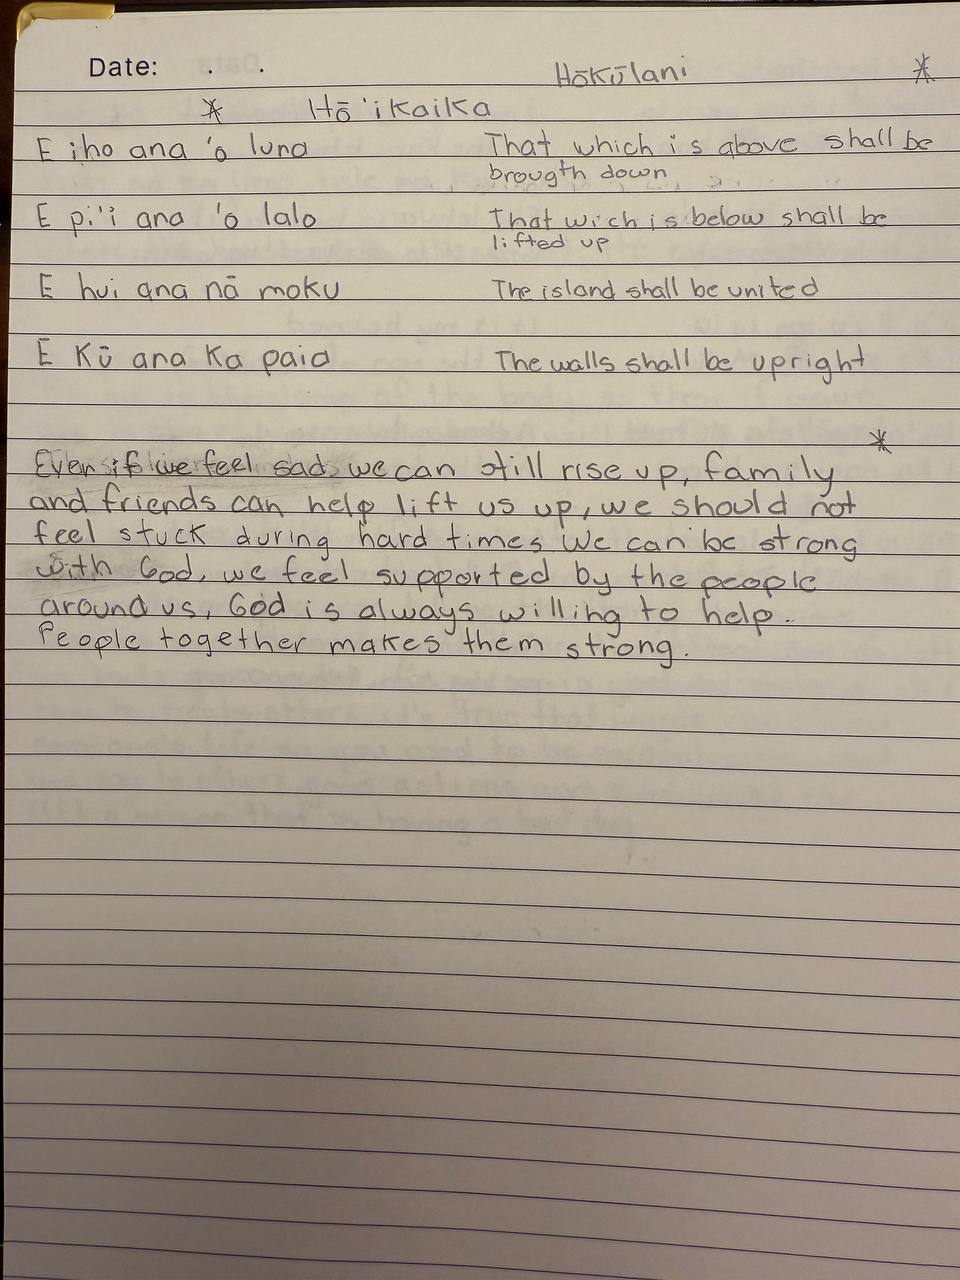 Date: . .
Hōkūlani
Hō 'ikaika
E iho ana 'o luna
That which is above shall be
brougth down
E pi'i ana 'o lalo
That wich is below shall be
lifted up
E hui ana nā moku
The island shall be united
E Kū ana Ka paia
The walls shall be upright
Even if we feel sad, we can still rise up, family
and friends can help lift us up, we should not
feel stuck during hard times We can be strong
with God, we feel supported by the people
around us, God is always willing to help.
People together makes them strong.